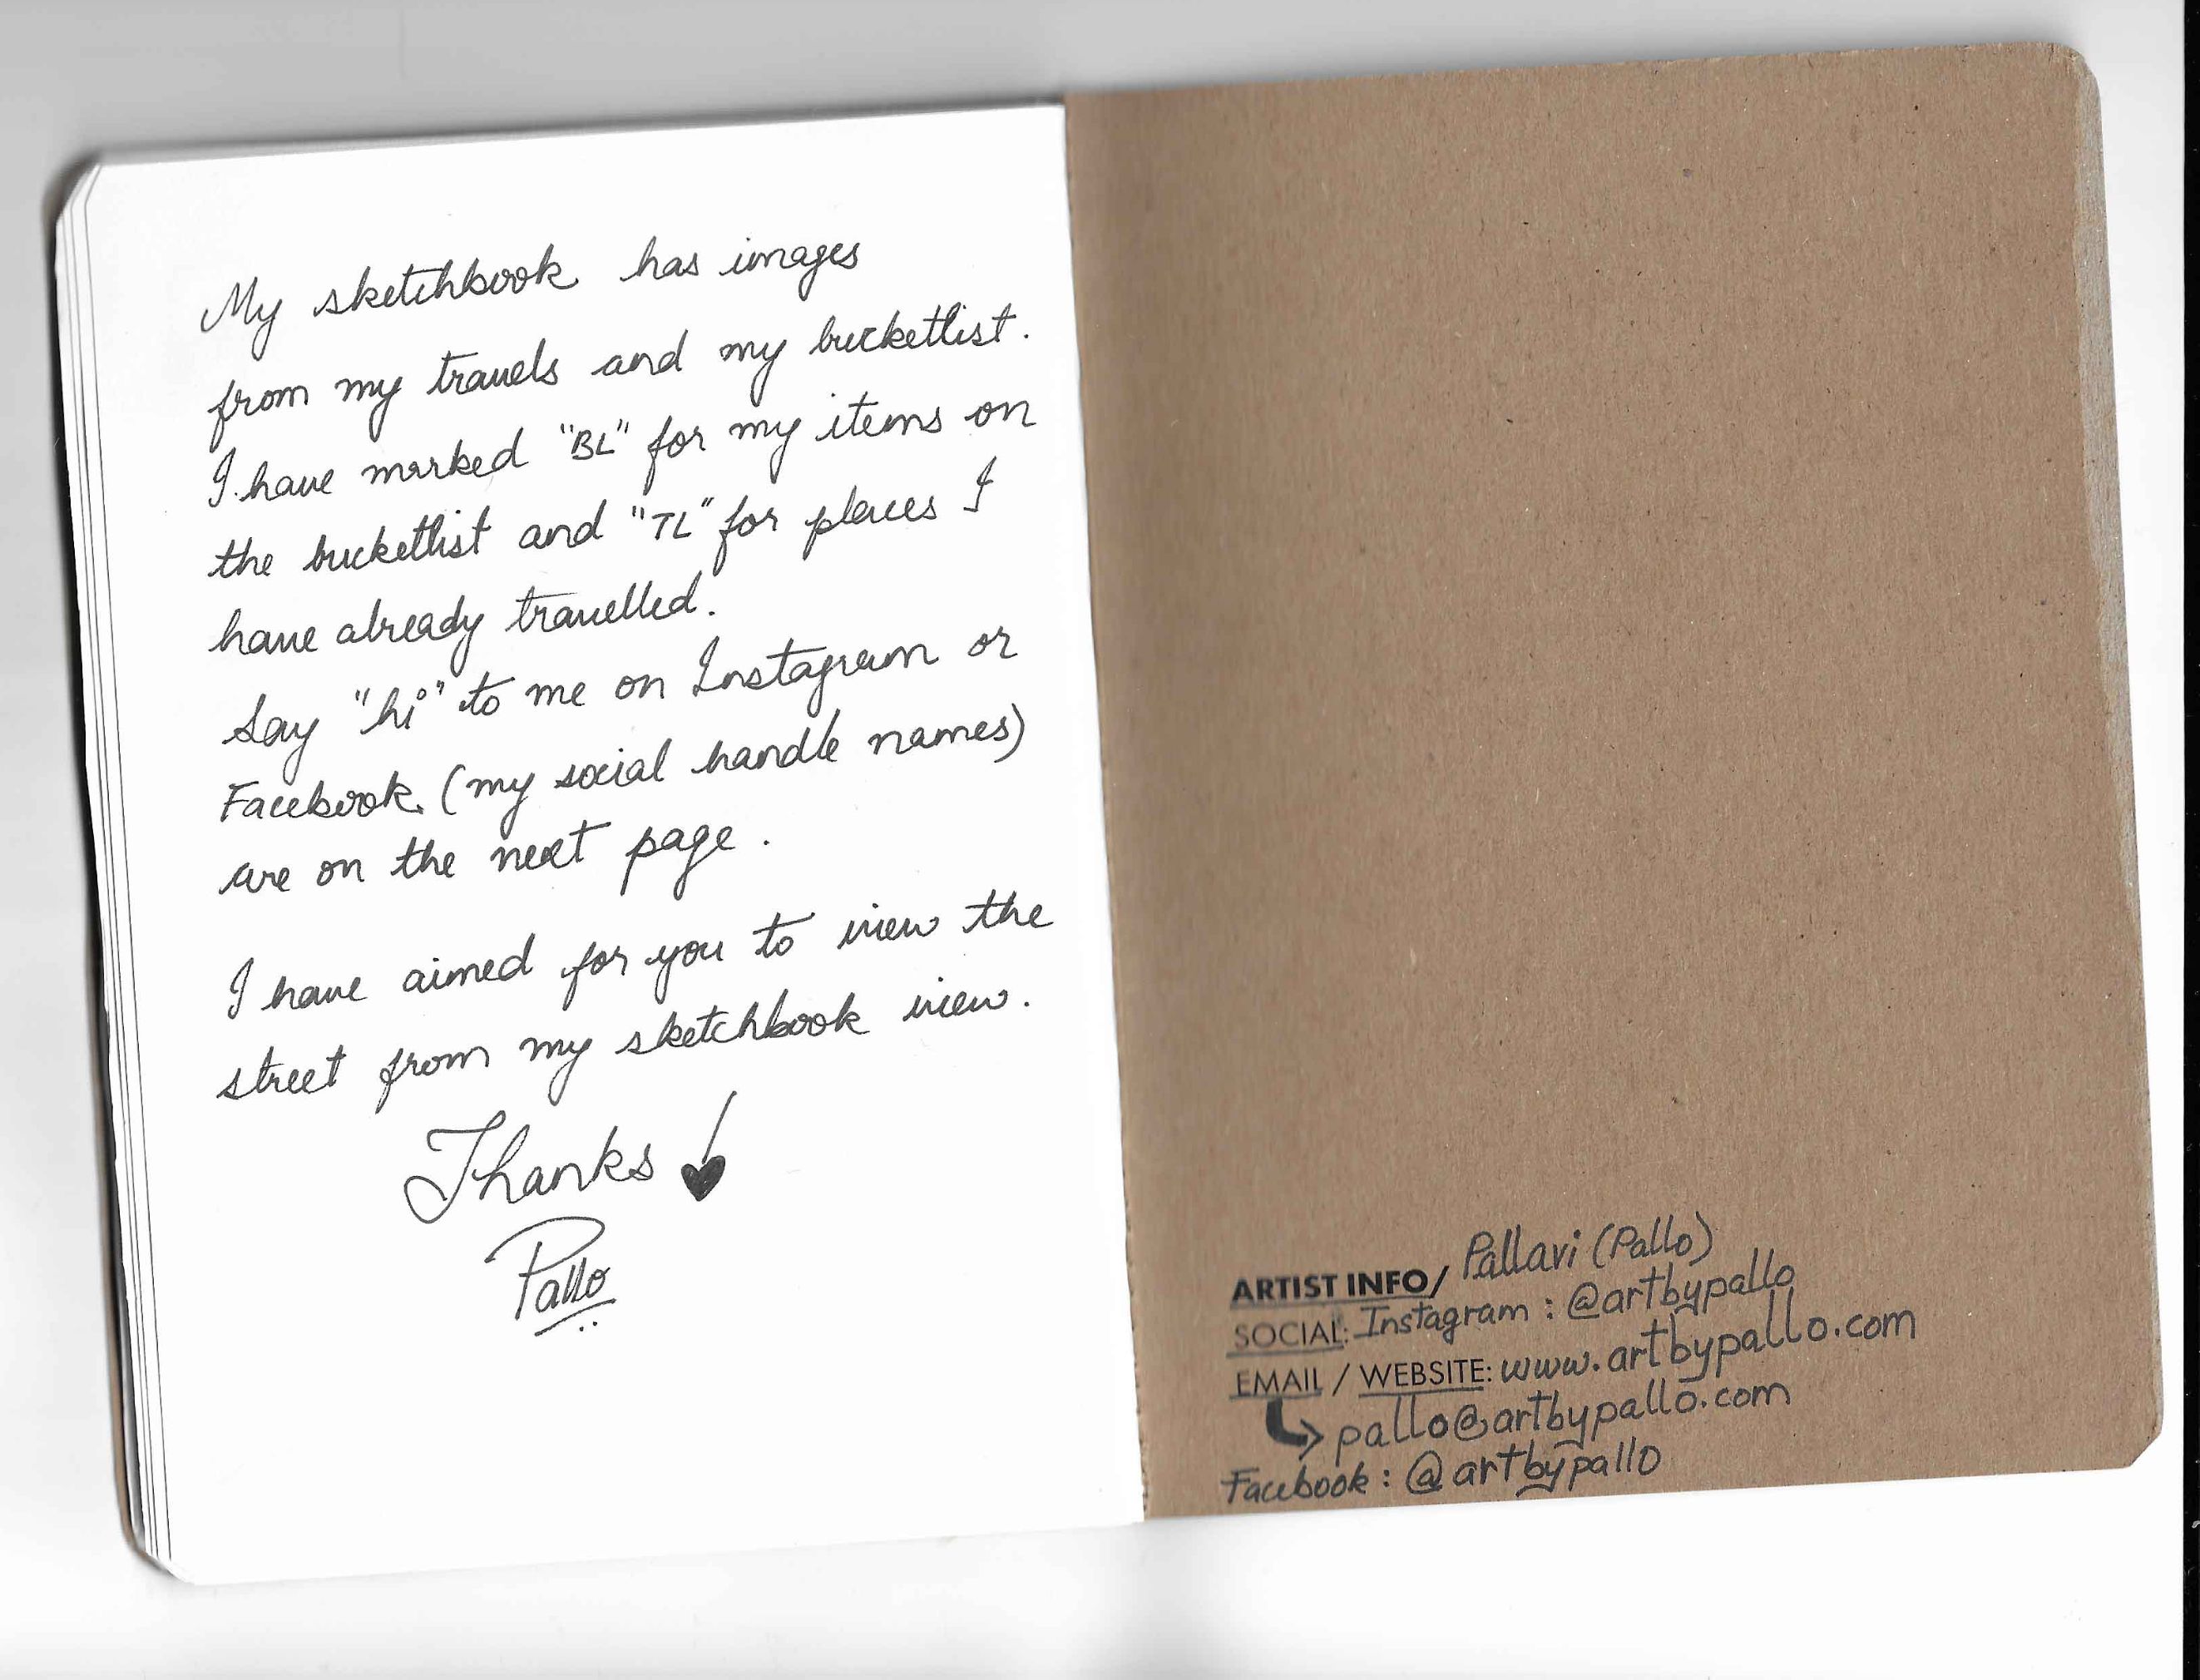 My sketchbook has images
from my travels and my bucketlist.
I have marked "BL" for my items on
the bucketlist and "TL" for places I
have already travelled.
Say "hi" to me on Instagram or
Facebook (my social handle names)
are on the next page.
I have aimed for you to view the
street from my sketchbook view.
Thanks!
Pallo
ARTIST INFO/ Pallavi (Pallo)
SOCIAL: Instagram : @artbypallo
EMAIL / WEBSITE: www.artbypallo.com
pallo@artbypallo.com
Facebook : @artbypallo